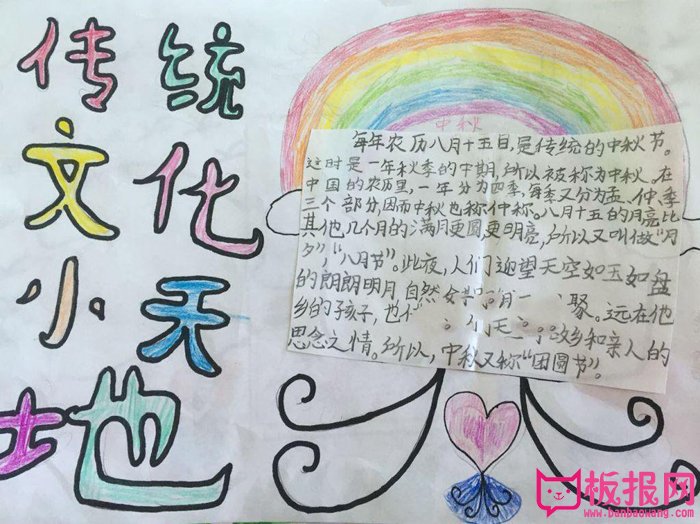 传统
文化
小天
地
中秋
每年农历八月十五日,是传统的中秋节。
这时是一年秋季的中期,所以被称为中秋。在
中国的农历里,一年分为四季,每季又分为孟、仲、季
三个部分,因而中秋也称仲称。八月十五的月亮比
其他几个月的满月更圆更明亮,所以又叫做“月
夕”,“八月节”。此夜,人们迎望天空如玉如盘
的朗朗明月自然 聚。远在他
乡的孩子,也 乡和亲人的
思念之情。所以,中秋又称“团圆节”。
板报网
www.banbaowang.com